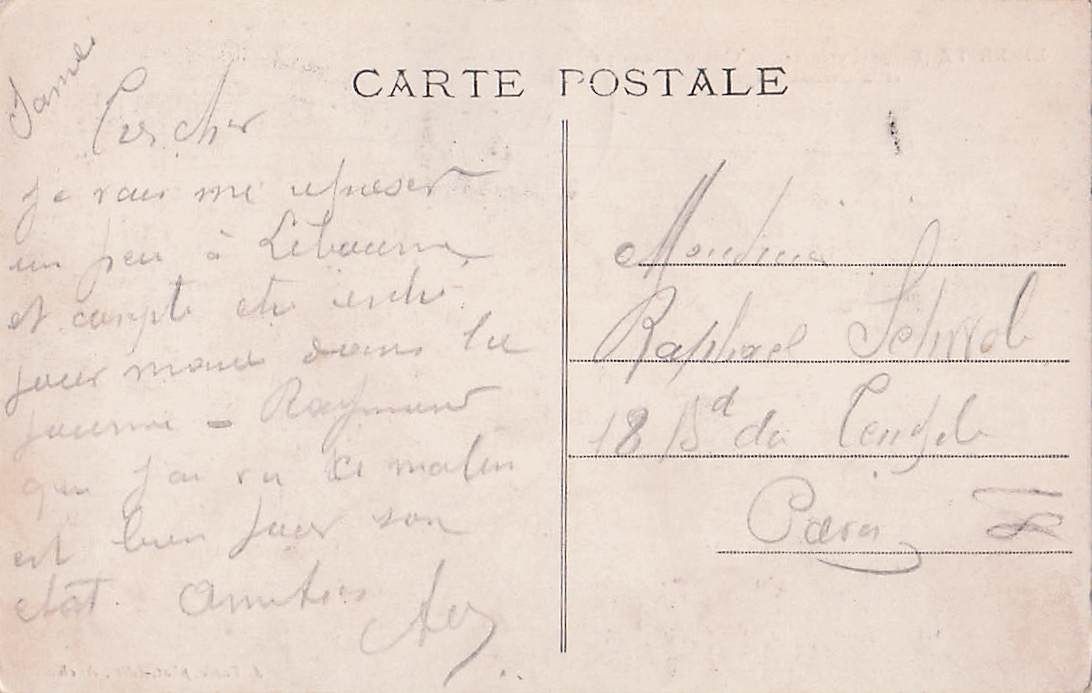 CARTE POSTALE
Très cher
Je vais me reposer
un peu à Libourne
et compte être
pour dans la
journée - Raymond
que j'ai vu ce matin
est bien pour son
état. Amitiés
Monsieur
Raphael Schwob
18 Bd du Temple
Paris